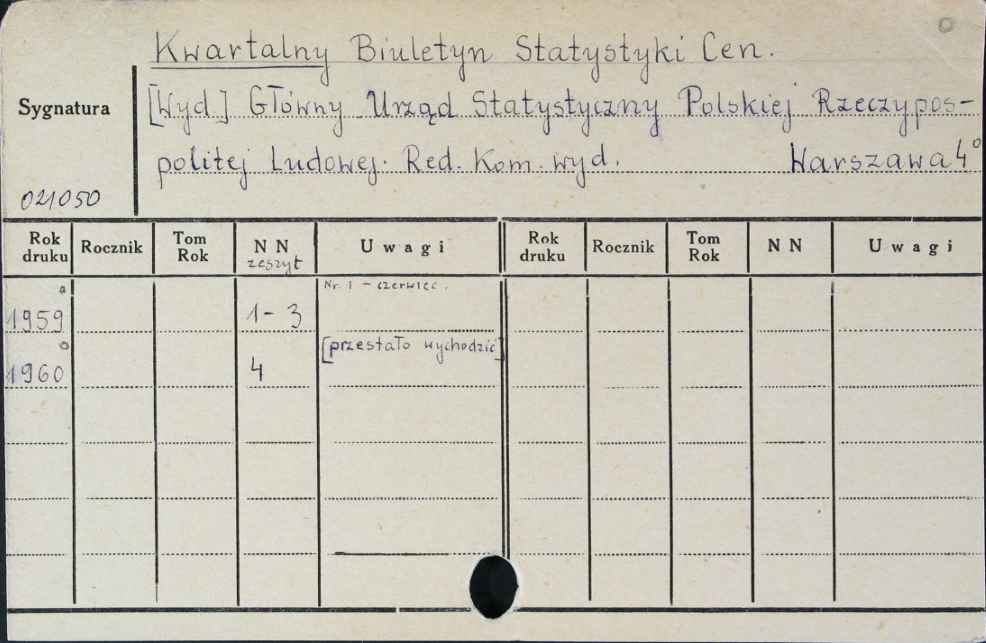 Kwartalny Biuletyn Statystyki Cen.
Sygnatura
[Wyd.] Główny Urząd Statystyczny Polskiej Rzeczypos-
politej Ludowej. Red. Kom. wyd. Warszawa 4°
021050
Rok druku Rocznik Tom Rok NN zeszyt Uwagi Rok druku Rocznik Tom Rok NN Uwagi
Nr. 1 - czerwiec.
1959 1-3
[przestało wychodzić]
1960 4